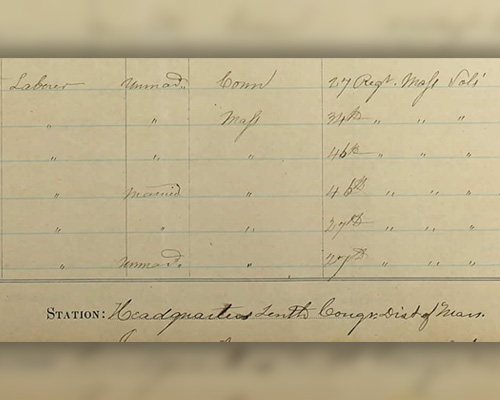 Laborer Unmad. Conn 27 Regt. Mass Vols
" " Mass 34th " " "
" " " 46th " " "
" Married " 46th " " "
" " " 27th " " "
" Unmad. " 27th " " "
STATION: Headquarters Tenth Congr. Dist of Mass.